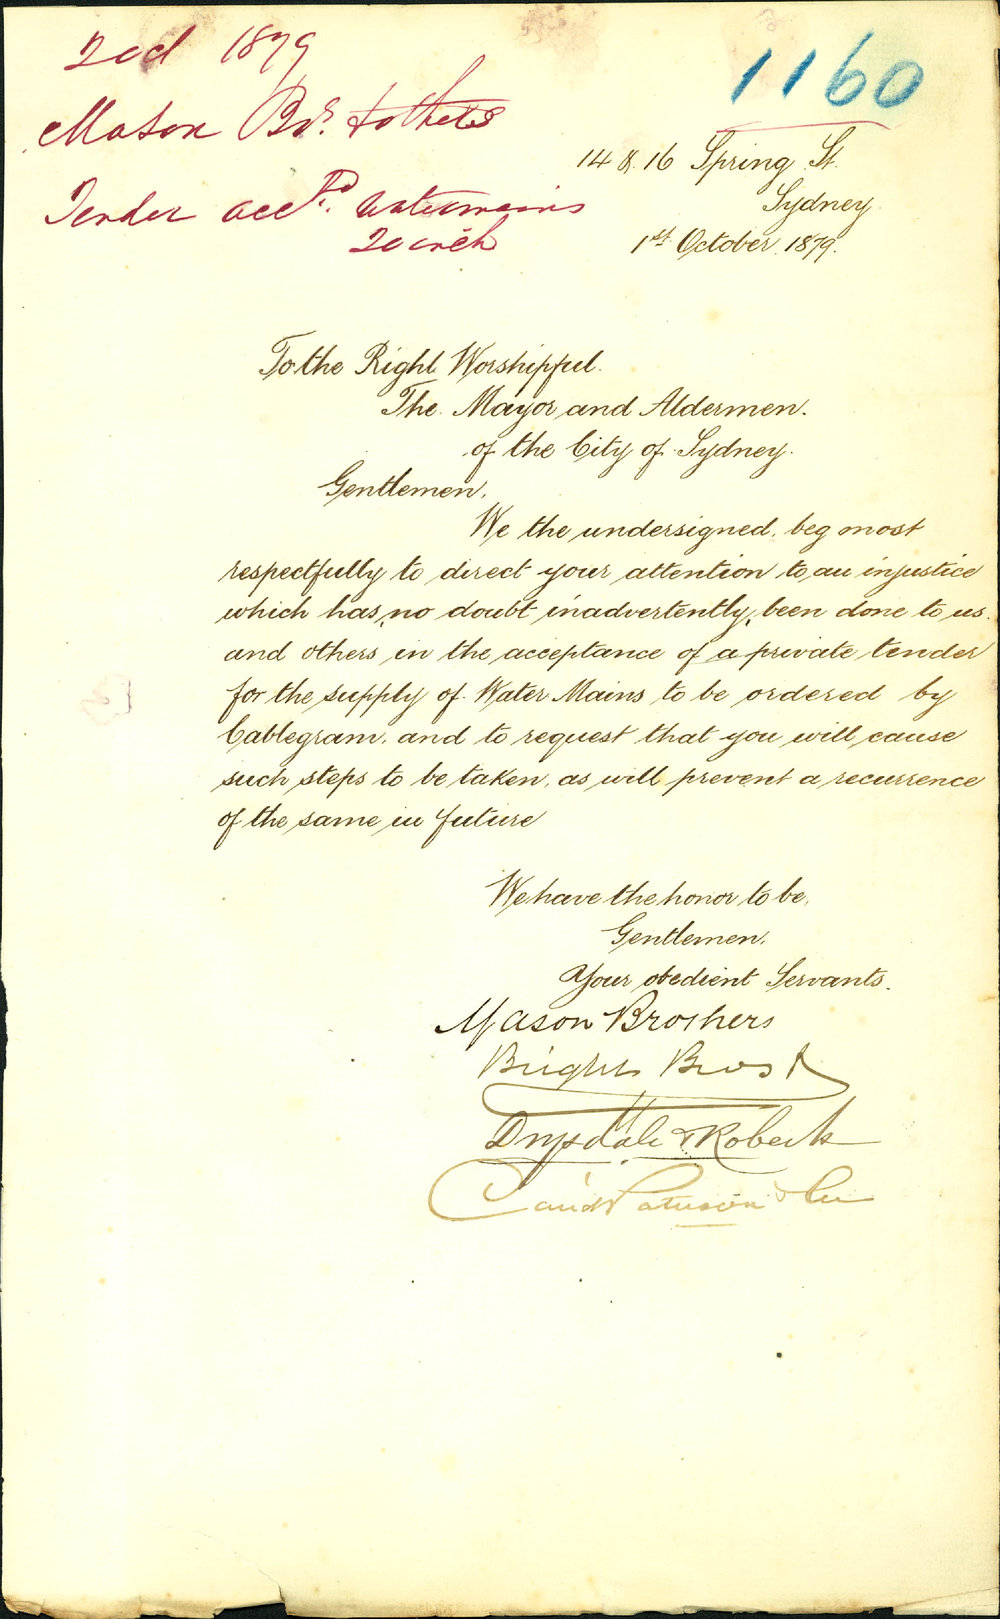 2 Oct 1879
1160
Mason Brs. & others
Tender accpd. Watermains
20 inch
14 & 16 Spring St.
Sydney.
1st October 1879.
To the Right Worshipful.
The Mayor and Aldermen.
of the City of Sydney.
Gentlemen,
We the undersigned, beg most
respectfully to direct your attention to an injustice
which has, no doubt inadvertently, been done to us
and others in the acceptance of a private tender
for the supply of Water Mains to be ordered by
Cablegram, and to request that you will cause
such steps to be taken, as will prevent a recurrence
of the same in future
We have the honor to be,
Gentlemen,
Your obedient Servants.
Mason Brothers
Bright Bros &
Drysdale & Roberts
Paterson & Co